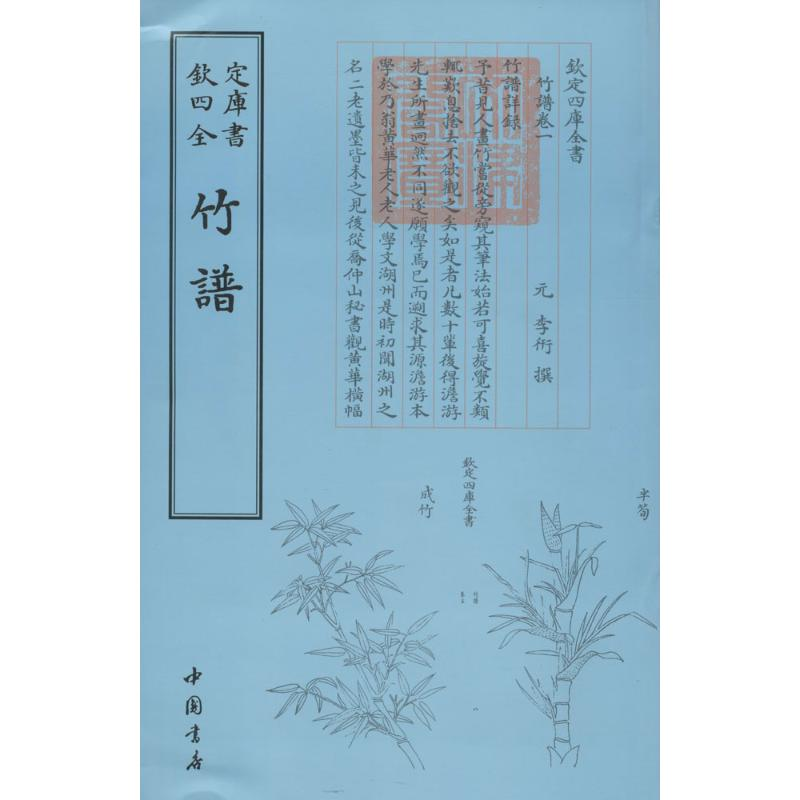 欽定四庫全書
竹譜
中國書店
欽定四庫全書
竹譜卷一
元 李衎 撰
竹譜詳録
予昔見人畫竹嘗從旁窺其筆法始若可喜旋覺不類
輒歎息捨去不欲觀之矣如是者凡數十輩後得澹游
先生所畫迥然不同遂願學焉已而遡求其源澹游本
學於乃翁黄華老人老人學文湖州是時初聞湖州之
名二老遺墨皆未之見後從喬仲山秘書觀黄華横幅
半筍
欽定四庫全書
成竹
竹譜